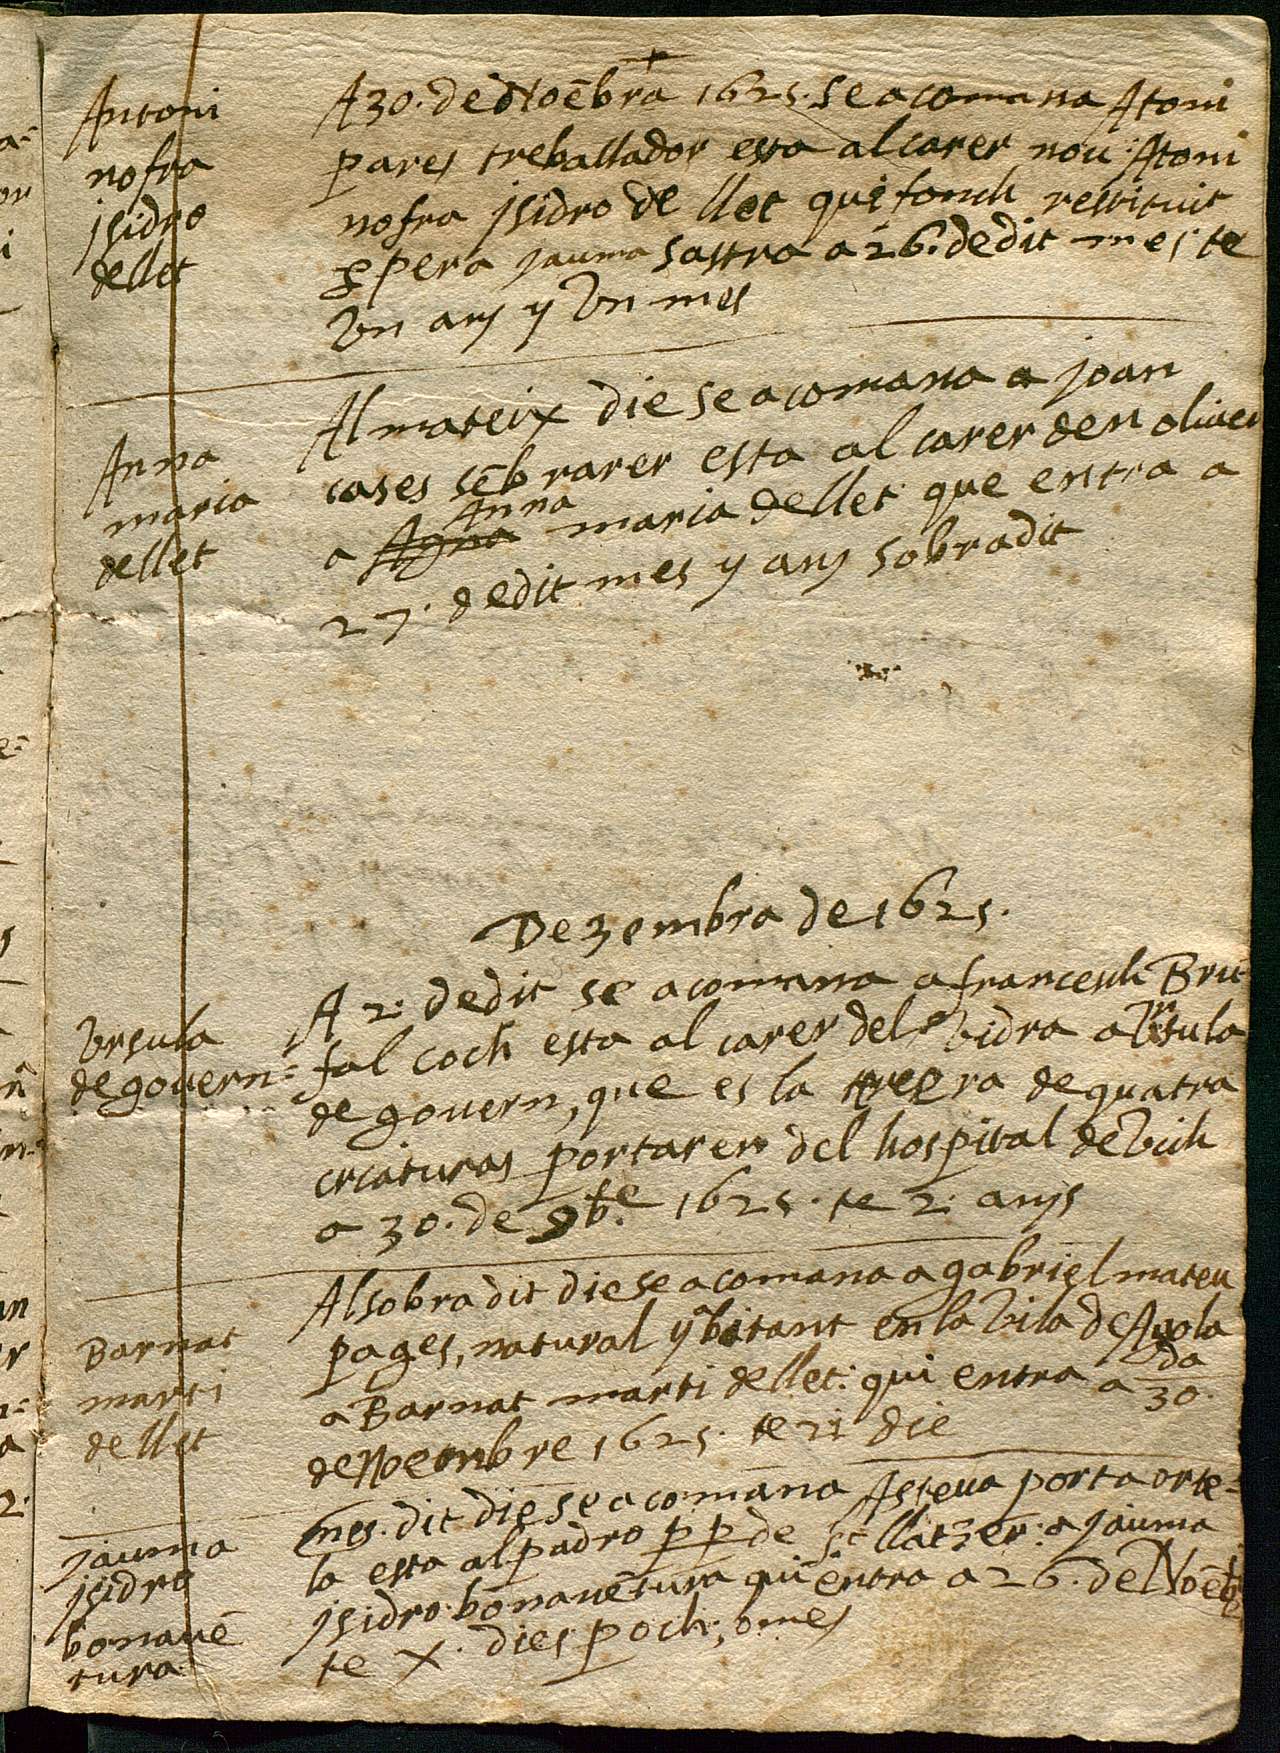 Antoni
nofra
jsidro
de llet
A 30. de Noēbra 1625. se acomana Atoni
pares treballador esta al carer nou. Atoni
nofra jsidro de llet qui fonch restituit
p pera jauma sastra a 26. de dit mes. te
Vn any y Vn mes
Anna
maria
de llet
Al mateix die se acomana a joan
cases sēbrarer esta al carer den oliver
Anna
a Agna maria de llet que entra a
27. de dit mes y any sobradit
Dezembra de 1625.
Vrsula
de govern=
A 2. de dit se acomana a francesch Bru
fal coch esta al carer del Vidra a Vrsula
de govern, que es la de quatra
criaturas portaren del hospital de Vich
a 30. de 9bre 1625. te 2. anys
Barnat
marti
de llet
Al sobradit die se acomana a gabriel mateu
pages, natural y abitant en la Vila de
a Barnat marti de llet. qui entra a 30.
de Noembre 1625. te 21 die
jauma
jsidro
bonauē
tura
mes. dit die se acomana Asteua porta orte-
la esta al padro p p de St llatzer. a jauma
jsidro bonauētura qui entra a 26. de Noēb
te X. dies poch, o mes